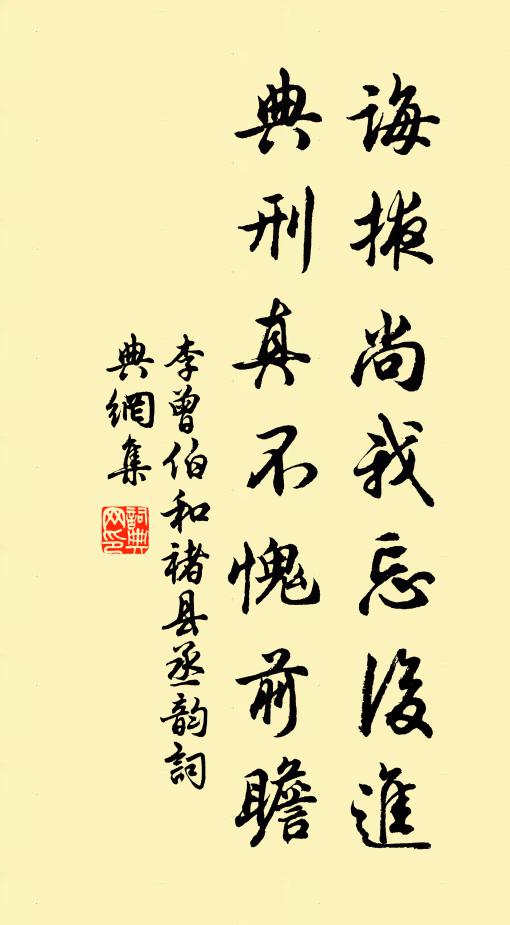 誨掖尚我忘後進
典刑真不愧前瞻
李曾伯和褚县丞韵詞
典網集
詞典網印